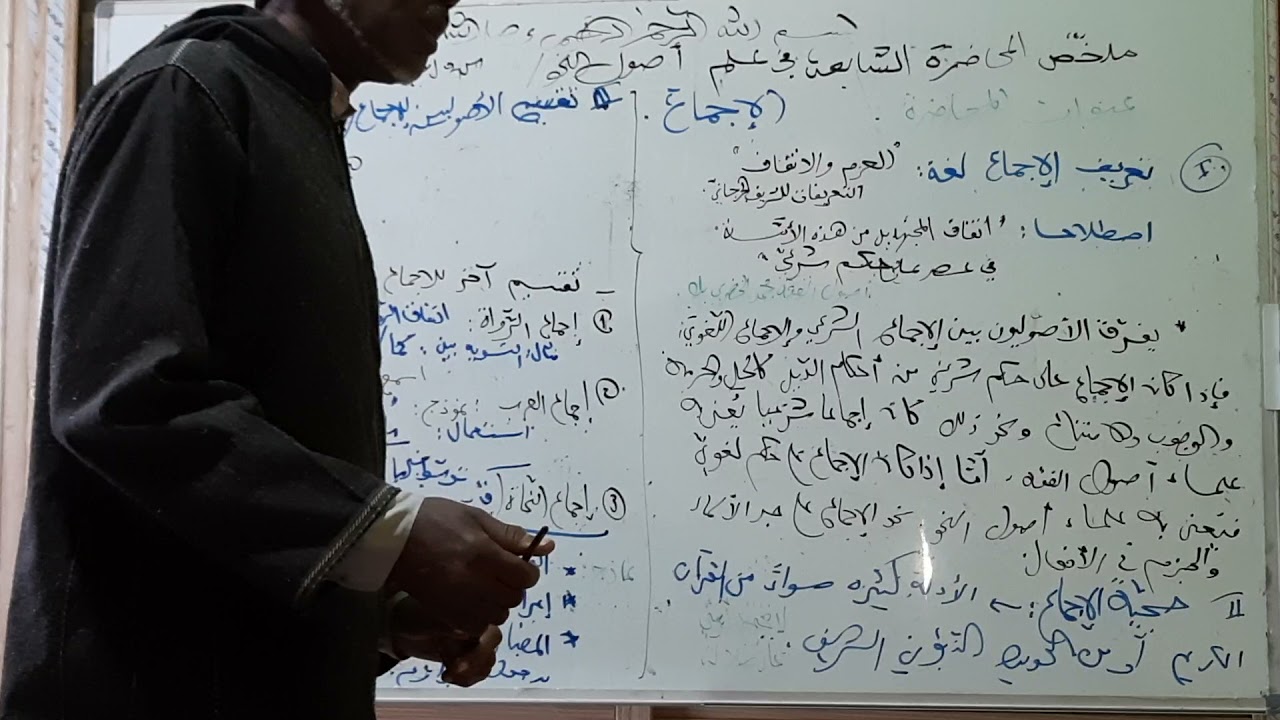 بسم الله الرحمن الرحيم
ملخّص المحاضرة السابعة في علم أصول النحو
عنوان المحاضرة : الإجماع .
I تعريف الإجماع لغة : "العزم والاتفاق"
التعريفات للشريف الجرجاني
اصطلاحا : "اتفاق المجتهدين من هذه الأمة
في عصر على حكم شرعيّ"
* يفرّق الأصوليون بين الإجماع الشرعي والإجماع اللغويّ :
فإذا كان الإجماع على حكم شرعي من أحكام الدّين كالحل والحرمة
والوجوب والامتناع ونحو ذلك كان إجماعا شرعيا يُعنى به
علماء أصول الفقه ، أمّا إذا كان الإجماع على حكم لغويّ
فيعنى به علماء أصول النحو نحو الإجماع على جر الأسماء
والجزم في الأفعال
II حجّيّة الإجماع : الأدلة كثيرة سواءً من القرآن
الكريم أو من الحديث النّبويّ الشريف .
تقسيم الأصوليين للإجماع
ـ تقسيم آخر للإجماع
① إجماع الرّواة : اتفاق
مثال : التسوية بين : كما
② إجماع العرب : نموذج :
استعمال :
③ إجماع النّحاة
نماذج :